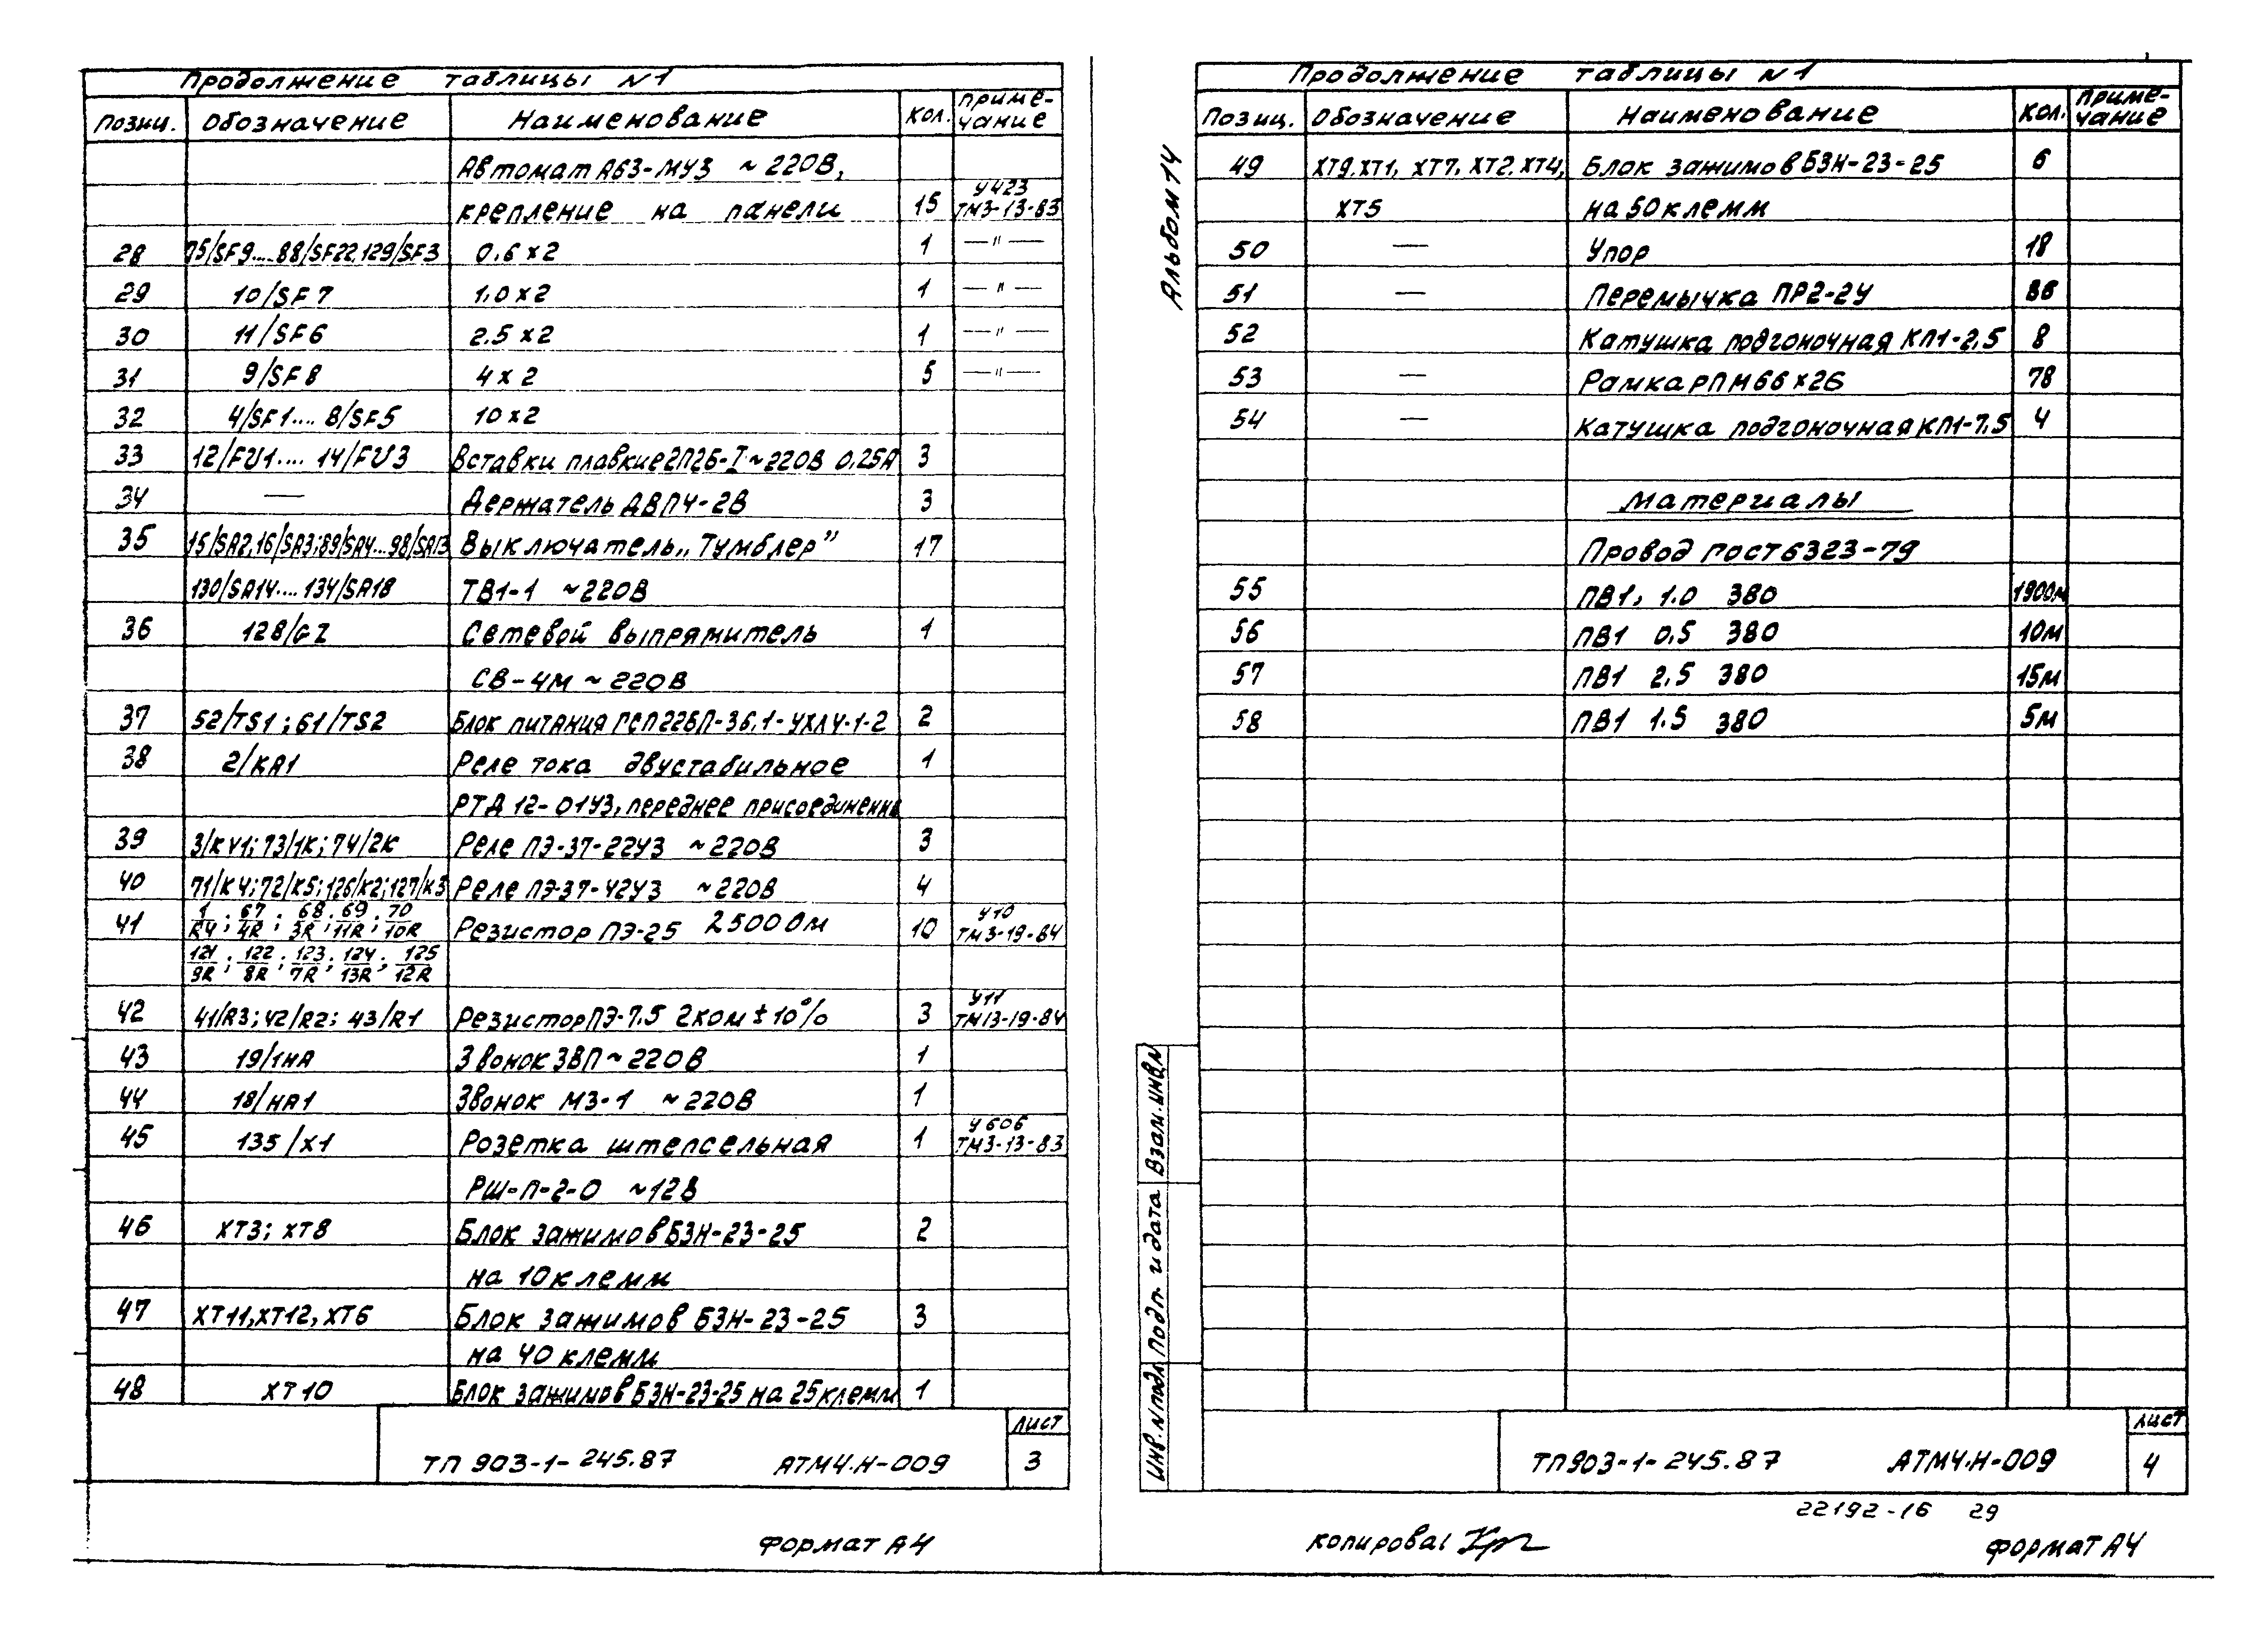 Продолжение таблицы N1
Позиц. Обозначение Наименование Кол. Приме-
чание
Автомат А63-МУ3 ~220В,
крепление на панели 15 У423
ТМ3-13-83
28 75/SF9....88/SF22,129/SF3 0.6×2 1 —"—
29 10/SF7 1,0×2 1 —"—
30 11/SF6 2.5×2 1 —"—
31 9/SF8 4×2 5 —"—
32 4/SF1.... 8/SF5 10×2
33 12/FU1.... 14/FU3 Вставки плавкие 2П2Б-I~220В 0.25А 3
34 — Держатель ДВП4-2В 3
35 15/SA2,16/SA3;89/SA4...98/SA13 Выключатель „Тумблер" 17
130/SA14.... 134/SA18 ТВ1-1 ~220В
36 128/GZ Сетевой выпрямитель 1
СВ-4М ~220В
37 52/TS1; 61/TS2 Блок питания ГСП 22БП-36.1-УХЛ4-1-2 2
38 2/KA1 Реле тока двустабильное 1
РТД 12-01У3, переднее присоединени
39 3/KV1; 73/1K; 74/2K Реле ПЭ-37-22У3 ~220В 3
40 71/K4;72/K5;126/K2;127/K3 Реле ПЭ-37-42У3 ~220В 4
41 1/R4; 67/4R; 68/3R; 69/11R; 70/10R Резистор ПЭ-25 2500 Ом 10 У10
ТМ3-19-84
121/9R; 122/8R; 123/7R; 124/13R; 125/12R
42 41/R3; 42/R2; 43/R1 Резистор ПЭ-7.5 2ком ±10% 3 У11
ТМ13-19-84
43 19/1НА Звонок ЗВП ~220В 1
44 18/НА1 Звонок МЗ-1 ~220В 1
45 135/X1 Розетка штепсельная 1 У606
ТМ3-13-83
РШ-П-2-0 ~12В
46 XT3; XT8 Блок зажимов БЗН-23-25 2
на 10 клемм
47 XT11,XT12, XT6 Блок зажимов БЗН-23-25 3
на 40 клемм
48 XT10 Блок зажимов БЗН-23-25 на 25 клемм 1
ТП 903-1-245.87 АТМ4.Н-009
Лист
3
Формат А4
Альбом 14
Продолжение таблицы N1
Позиц. Обозначение Наименование Кол. Приме-
чание
49 XT9.XT1, XT7, XT2.XT4, Блок зажимов БЗН-23-25 6
XT5 на 50 клемм
50 — Упор 18
51 — Перемычка ПР2-2У 86
52 — Катушка подгоночная КП1-2,5 8
53 — Рамка РПМ 66×26 78
54 — Катушка подгоночная КП1-7,5 4
Материалы
Провод ГОСТ 6323-79
55 ПВ1, 1.0 380 1900м
56 ПВ1 0,5 380 10м
57 ПВ1 2,5 380 15м
58 ПВ1 1.5 380 5м
Взам. инв. N
Подп. и дата
Инв. N подл
ТП903-1-245.87 АТМ4.Н-009
Лист
4
22192-16 29
Копировал
Формат А4